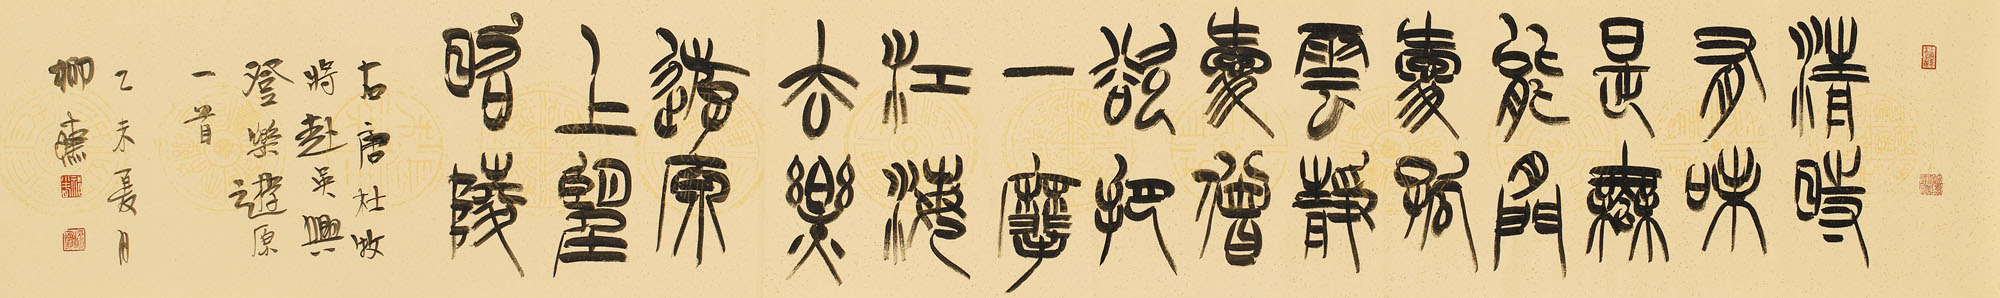 清時
有味
是無
能閒
愛孤
雲靜
愛僧
欲把
一麾
江海
去樂
遊原
上望
昭陵
右唐杜牧
將赴吳興
登樂遊原
一首
乙未夏月
柳